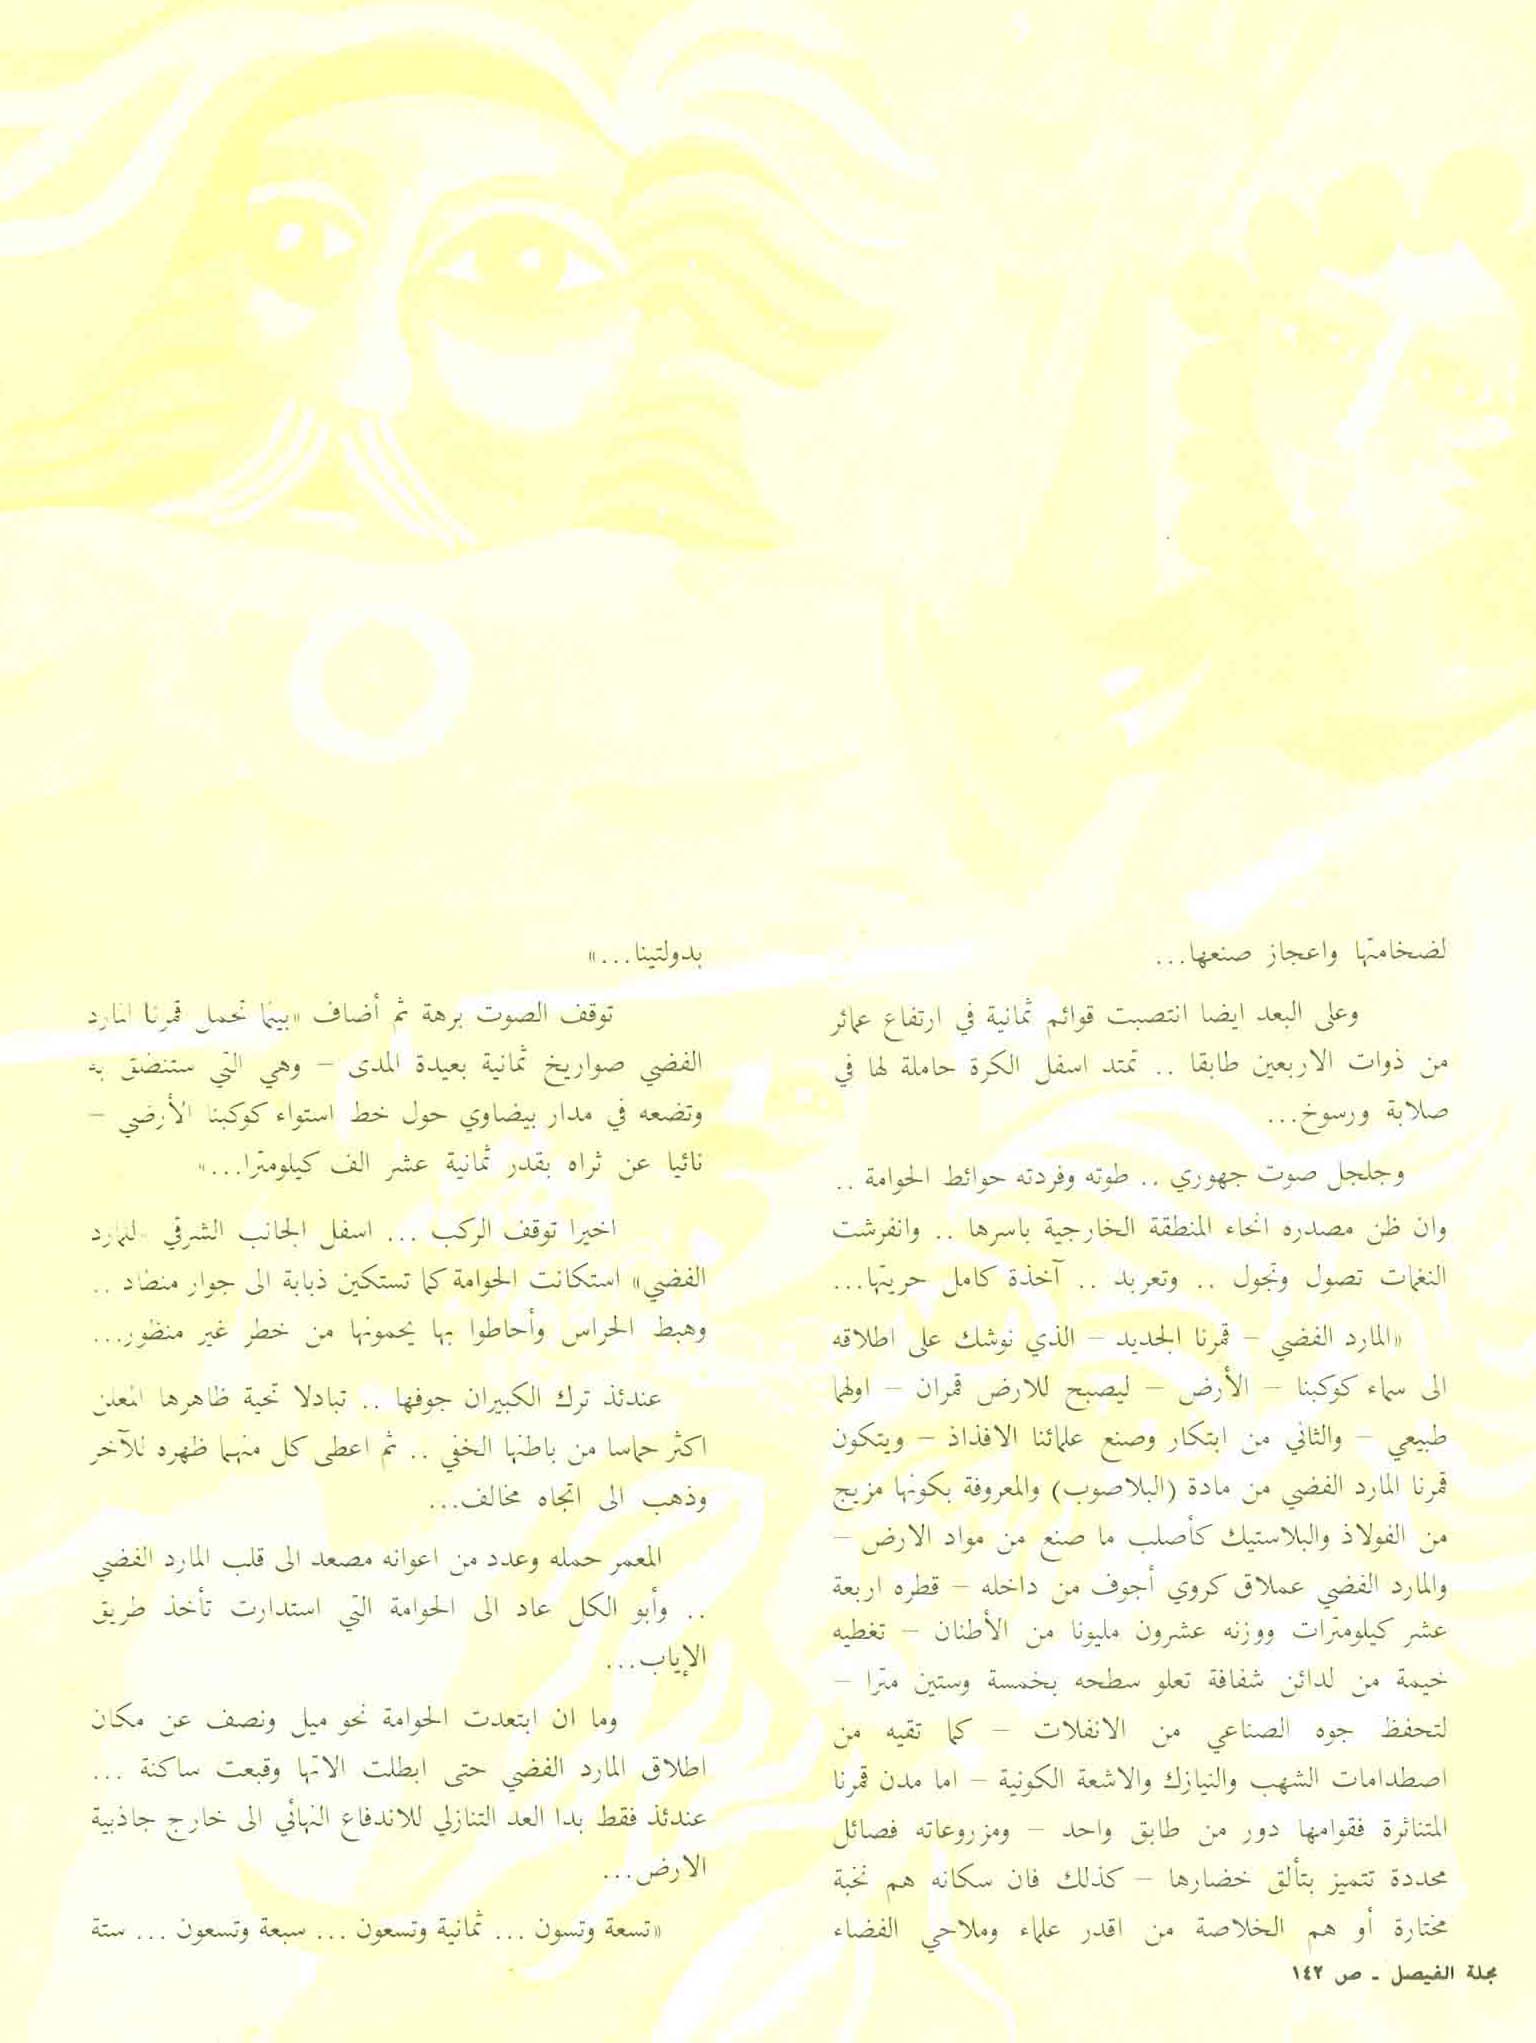 لضخامتها واعجاز صنعها...
وعلى البعد ايضا انتصبت قوائم ثمانية في ارتفاع عمائر
من ذوات الاربعين طابقا .. تمتد اسفل الكرة حاملة لها في
صلابة ورسوخ...
وجلجل صوت جهوري .. طوته وفردته حوائط الحوامة ..
وان ظن مصدره انحاء المنطقة الخارجية باسرها .. وانفرشت
النغمات تصول وتجول .. وتعربد .. آخذة كامل حريتها...
«المارد الفضي – قمرنا الجديد – الذي نوشك على اطلاقه
الى سماء كوكبنا – الأرض – ليصبح للارض قمران – اولهما
طبيعي – والثاني من ابتكار وصنع علمائنا الافذاذ – ويتكون
قمرنا المارد الفضي من مادة (البلاصوب) والمعروفة بكونها مزيج
من الفولاذ والبلاستيك كأصلب ما صنع من مواد الارض –
والمارد الفضي عملاق كروي أجوف من داخله – قطره اربعة
عشر كيلومترات ووزنه عشرون مليونا من الأطنان – تغطيه
خيمة من لدائن شفافة تعلو سطحه بخمسة وستين مترا –
لتحفظ جوه الصناعي من الانفلات – كما تقيه من
اصطدامات الشهب والنيازك والاشعة الكونية – اما مدن قمرنا
المتناثرة فقوامها دور من طابق واحد – ومزروعاته فصائل
محددة تتميز بتألق خضارها – كذلك فان سكانه هم نخبة
مختارة أو هم الخلاصة من اقدر علماء وملاحي الفضاء
بدولتينا...»
توقف الصوت برهة ثم أضاف «بينما تحمل قمرنا المارد
الفضي صواريخ ثمانية بعيدة المدى – وهي التي ستنطق به
وتضعه في مدار بيضاوي حول خط استواء كوكبنا الأرضي –
نائيا عن ثراه بقدر ثمانية عشر الف كيلومترا...»
اخيرا توقف الركب ... اسفل الجانب الشرقي «للمارد
الفضي» استكانت الحوامة كما تستكين ذبابة الى جوار منطاد ..
وهبط الحراس وأحاطوا بها يحمونها من خطر غير منظور...
عندئذ ترك الكبيران جوفها .. تبادلا تحية ظاهرها المعلن
اكثر حماسا من باطنها الخفي .. ثم اعطى كل منهما ظهره للآخر
وذهب الى اتجاه مخالف...
المعمر حمله وعدد من اعوانه مصعد الى قلب المارد الفضي
.. وأبو الكل عاد الى الحوامة التي استدارت تأخذ طريق
الإياب...
وما ان ابتعدت الحوامة نحو ميل ونصف عن مكان
اطلاق المارد الفضي حتى ابطلت الاتها وقبعت ساكنة ...
عندئذ فقط بدا العد التنازلي للاندفاع النهائي الى خارج جاذبية
الارض...
«تسعة وتسون ... ثمانية وتسعون ... سبعة وتسعون ... ستة
مجلة الفيصل ـ ص ١٤٢